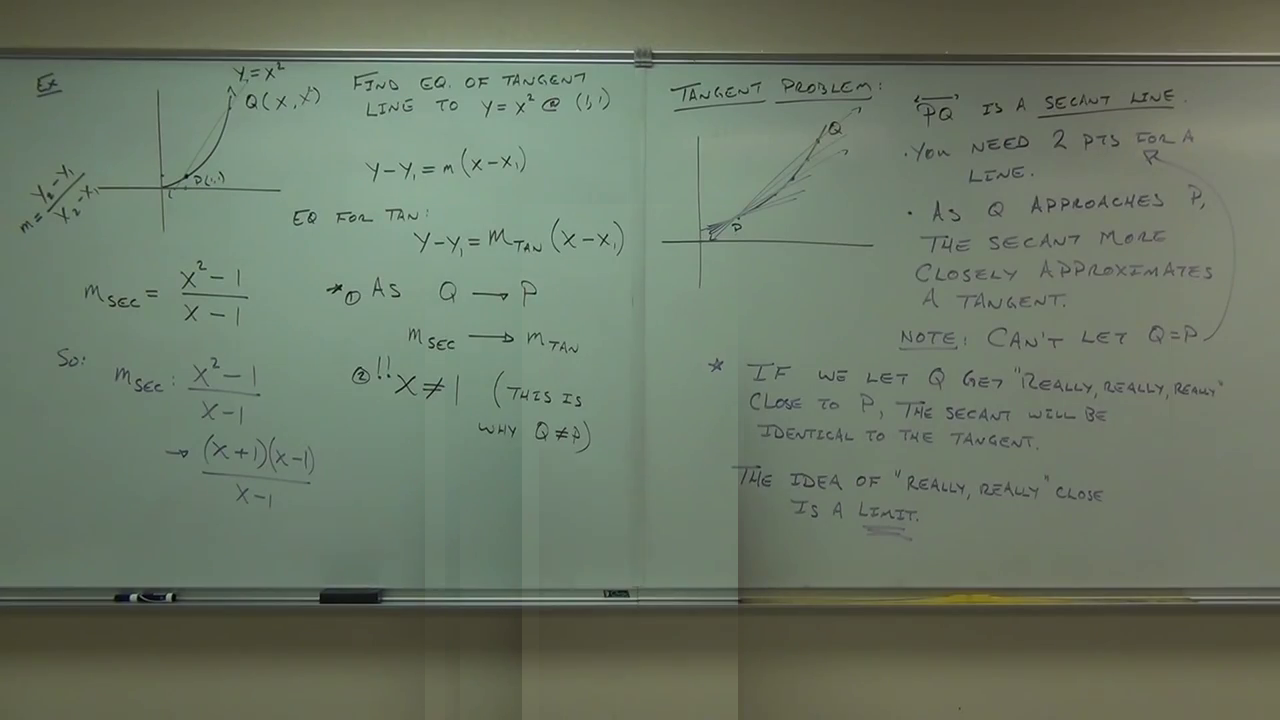 Ex
Y = X²
Q(X, X²)
P(1,1)
m = Y₂ - Y₁ / X₂ - X₁
FIND EQ. OF TANGENT
LINE TO Y = X² @ (1,1)
Y - Y₁ = m(X - X₁)
EQ FOR TAN:
Y - Y₁ = m_TAN (X - X₁)
m_SEC = X² - 1 / X - 1
* ① AS Q → P
m_SEC → m_TAN
② !! X ≠ 1 (THIS IS
WHY Q ≠ P)
SO: m_SEC: X² - 1 / X - 1
→ (X + 1)(X - 1) / X - 1
TANGENT PROBLEM:
Q
P
PQ IS A SECANT LINE.
• YOU NEED 2 PTS FOR A
LINE.
• AS Q APPROACHES P,
THE SECANT MORE
CLOSELY APPROXIMATES
A TANGENT.
NOTE: CAN'T LET Q = P
* IF WE LET Q GET "REALLY, REALLY, REALLY"
CLOSE TO P, THE SECANT WILL BE
IDENTICAL TO THE TANGENT.
THE IDEA OF "REALLY, REALLY" CLOSE
IS A LIMIT.